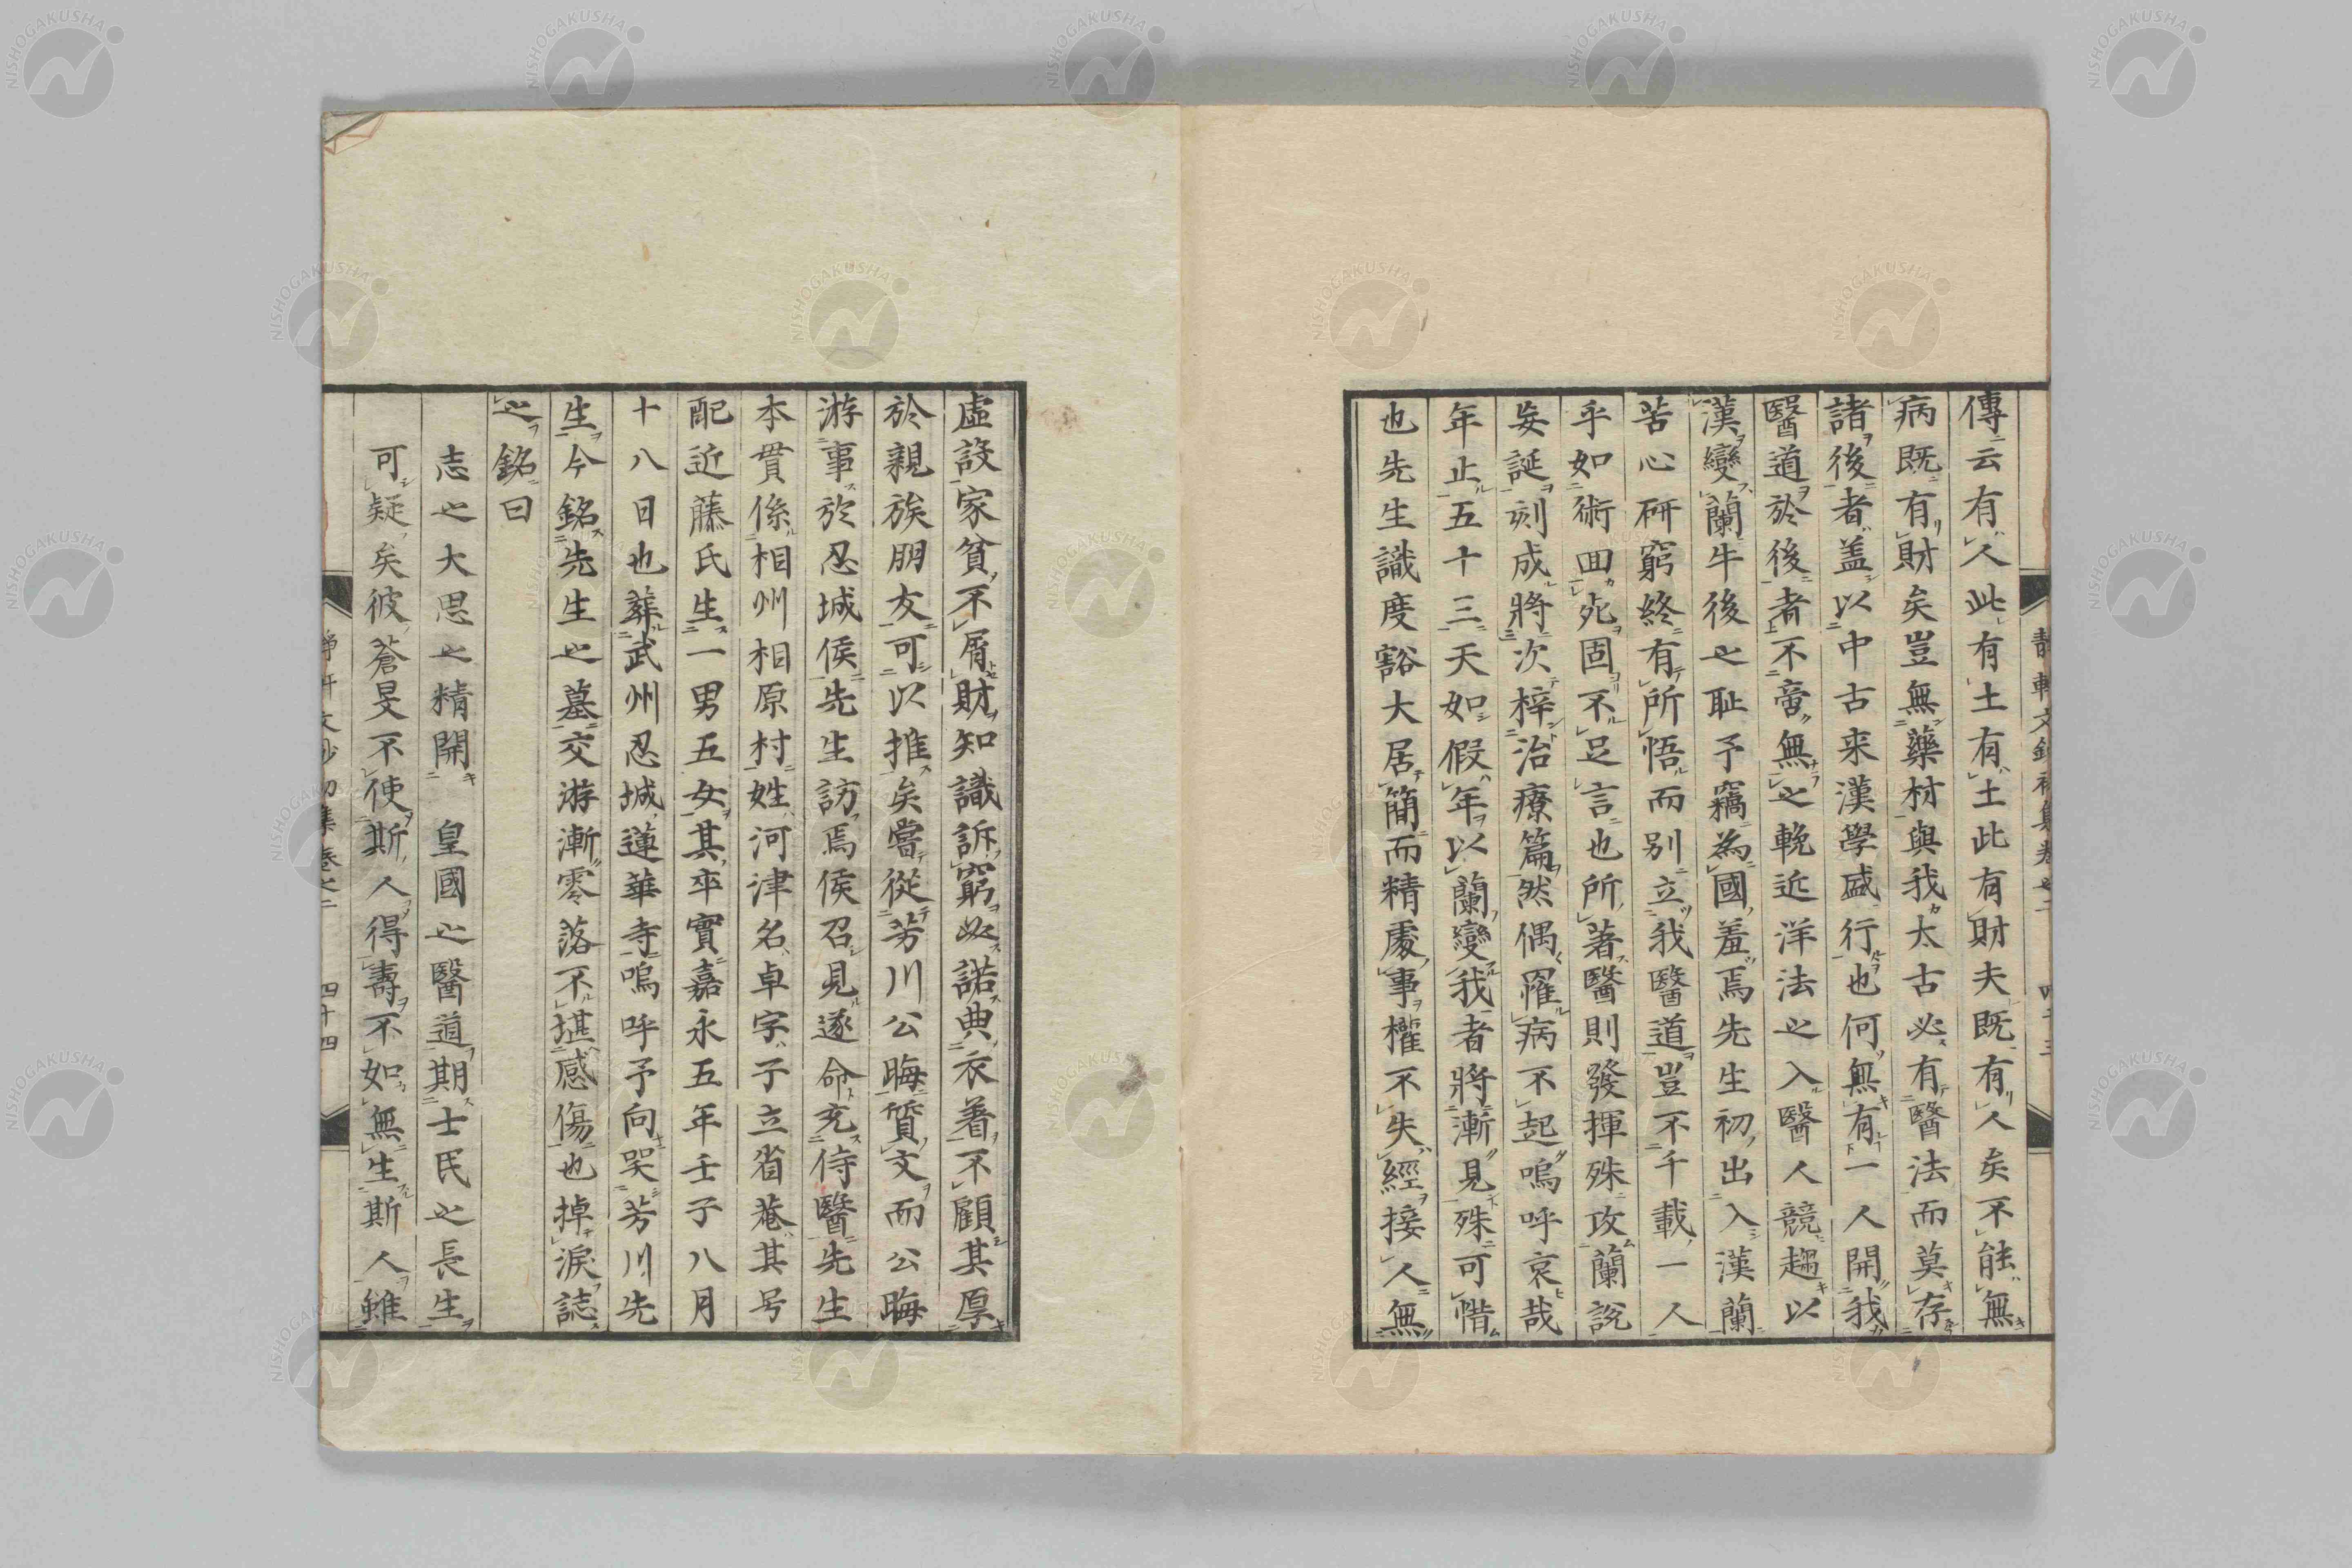 傳云有人此有土有土此有財夫既有人矣不能無
病既有財矣豈無藥材與我太古必有醫法而莫存
諸後者盖以中古来漢學盛行也何無有一人開我
醫道於後者不啻無之輓近洋法之入醫人競趨以
漢變蘭牛後之耻予竊為國羞焉先生初出入漢蘭
苦心研窮終有所悟而別立我醫道豈不千載一人
乎如術回死固不足言也所著醫則發揮殊攻蘭說
妄誕刻成將次梓治療篇然偶罹病不起嗚呼哀哉
年止五十三天如假年以蘭變我者將漸見殊可惜
也先生識度豁大居簡而精處事權不失經接人無
虛設家貧不屑財知識訴窮必諾典衣着不顧其厚
於親族朋友可以推矣嘗從芳川公晦質文而公晦
游事於忍城侯先生訪焉侯召見遂命充侍醫先生
本貫係相州相原村姓河津名卓字子立省菴其号
配近藤氏生一男五女其卒實嘉永五年壬子八月
十八日也葬武州忍城蓮華寺嗚呼予向哭芳川先
生今銘先生之墓交游漸零落不堪感傷也掉淚誌
之銘曰
志之大思之精開　皇國之醫道期士民之長生
可疑矣彼蒼旻不使斯人得壽不如無生斯人雖
四十四
NISHOGAKUSHA